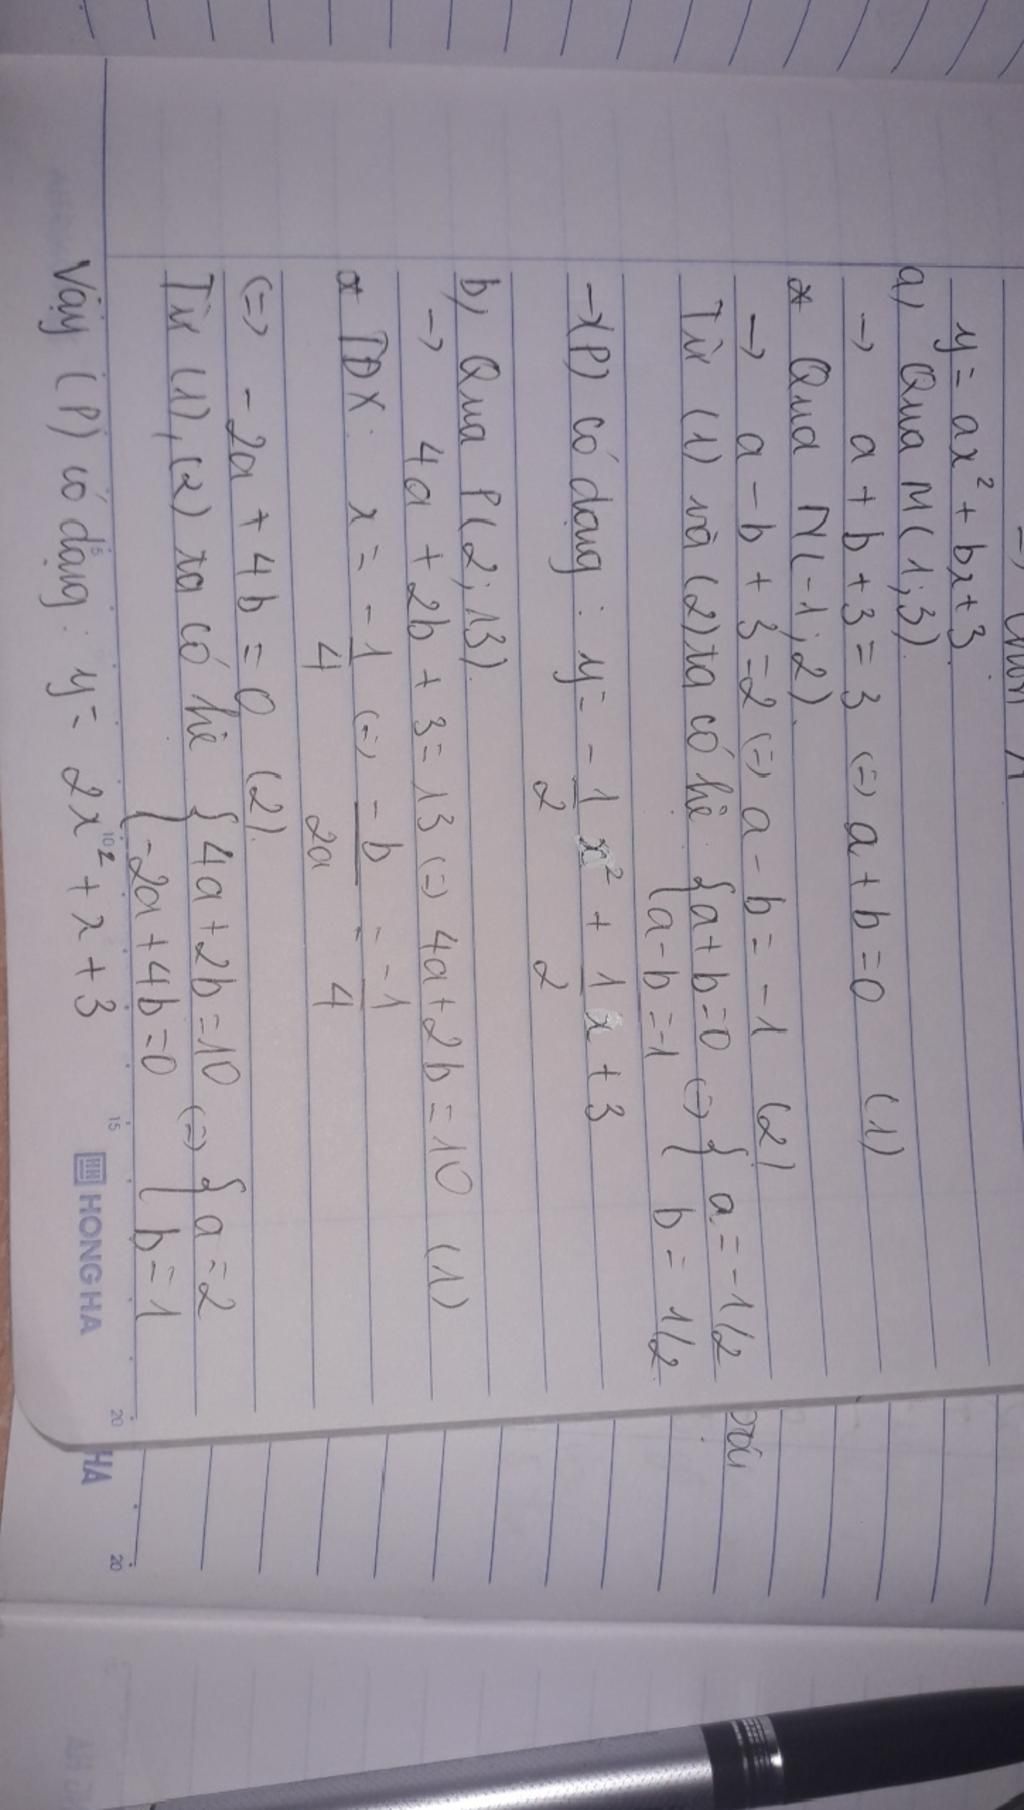 y = ax² + bx + 3
a) Qua M(1;3)
→ a + b + 3 = 3 (=) a + b = 0 (1)
* Qua N(-1;2)
→ a - b + 3 = 2 (=) a - b = -1 (2)
Từ (1) và (2) ta có hệ { a + b = 0 (=) { a = -1/2
{ a - b = -1 { b = 1/2
→ (P) có dạng : y = - 1/2 x² + 1/2 x + 3
b) Qua P(2;13)
→ 4a + 2b + 3 = 13 (=) 4a + 2b = 10 (1)
* TĐX : x = - 1/4 (=) -b/2a = -1/4
(=) -2a + 4b = 0 (2).
Từ (1), (2) ta có hệ { 4a + 2b = 10 (=) { a = 2
{ -2a + 4b = 0 { b = 1
Vậy (P) có dạng : y = 2x² + x + 3
5 10 15 20
HONG HA
HA
20